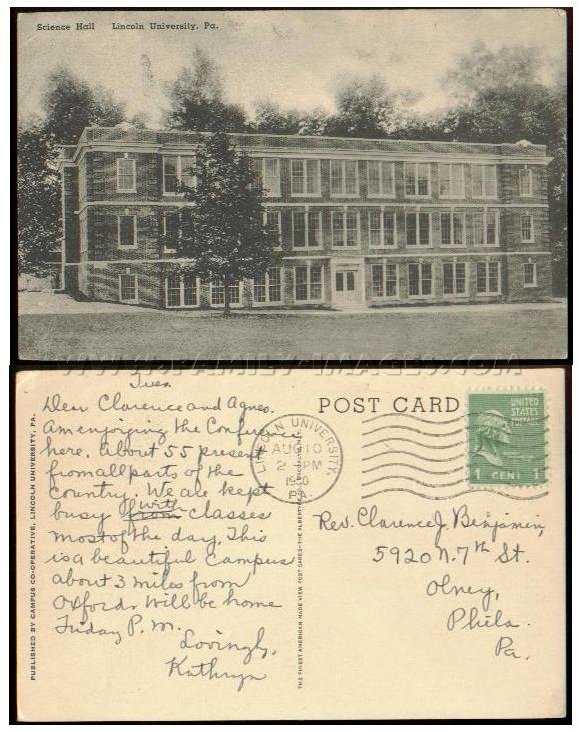 Science Hall Lincoln University, Pa.
WWW.FAMILY-IMAGES.COM
Tues.
Dear Clarence and Agnes.
Am enjoying the Conference
here. About 55 present
from all parts of the
Country. We are kept
with
busy from classes
most of the day. This
is a beautiful Campus
about 3 miles from
Oxford. Will be home
Friday P.M.
Lovingly,
Kathryn
PUBLISHED BY CAMPUS CO-OPERATIVE, LINCOLN UNIVERSITY, PA.
THE FINEST AMERICAN MADE VIEW POST CARDS—THE ALBERTYPE
POST CARD
LINCOLN UNIVERSITY,
AUG 10
2 PM
PA.
UNITED
STATES
POSTAGE
1 CENT 1
Rev. Clarence J. Benjamin,
5920 N. 7th St.
Olney,
Phila.
Pa.